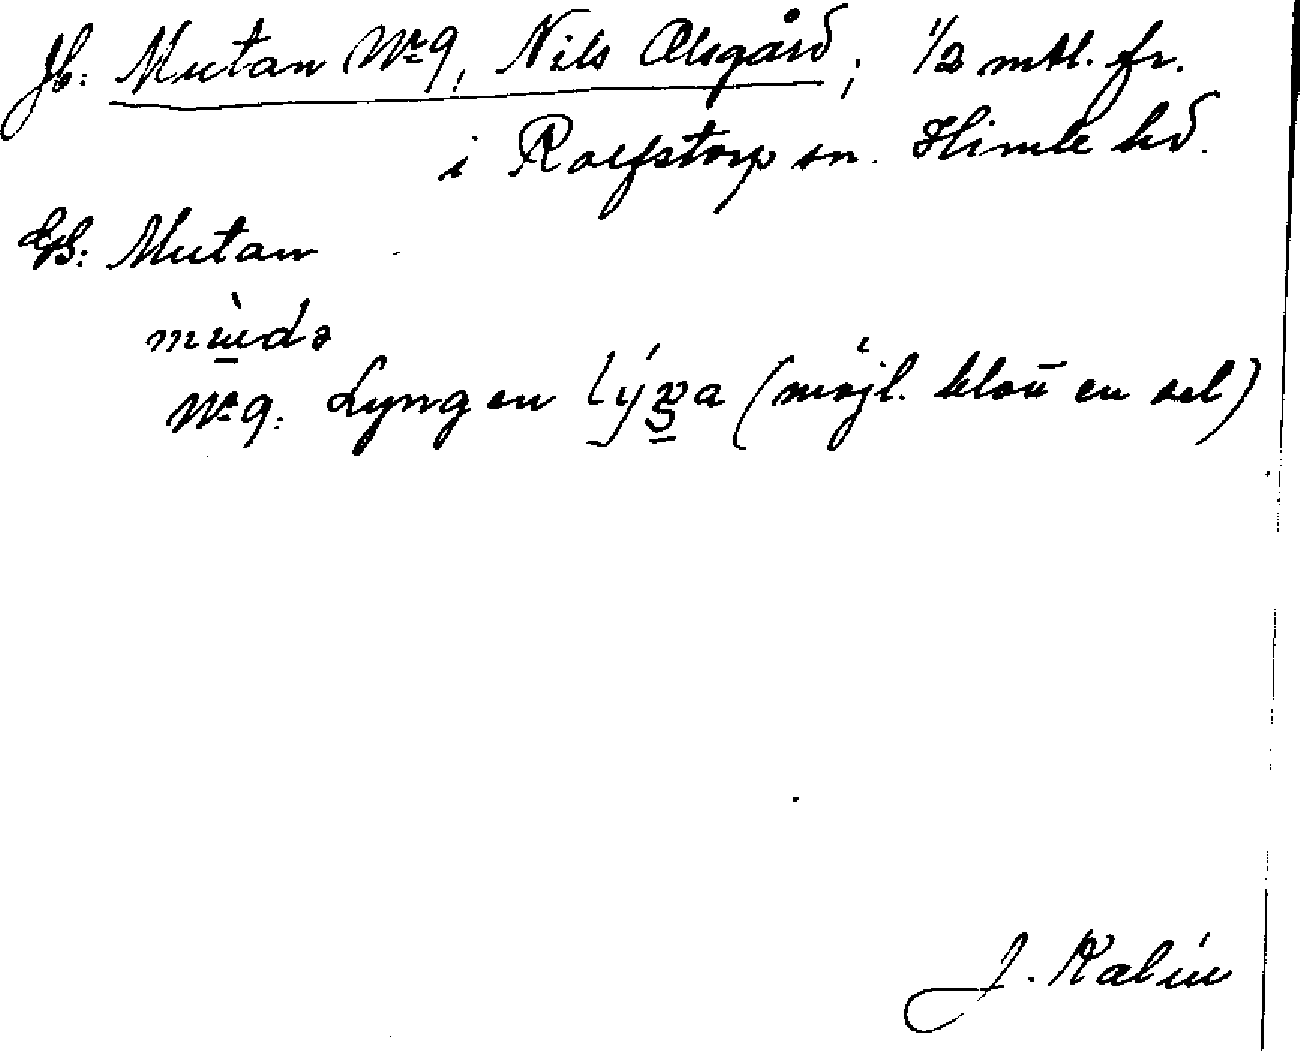 Jb: Mutan Nr 9, Nils Olsgård; 1/2 mtl. fr.
i Rolfstorp sn. Himle hd.
Gb: Mutan
Nr 9: Lyngen (möjl. blott en del)
J. Kalén